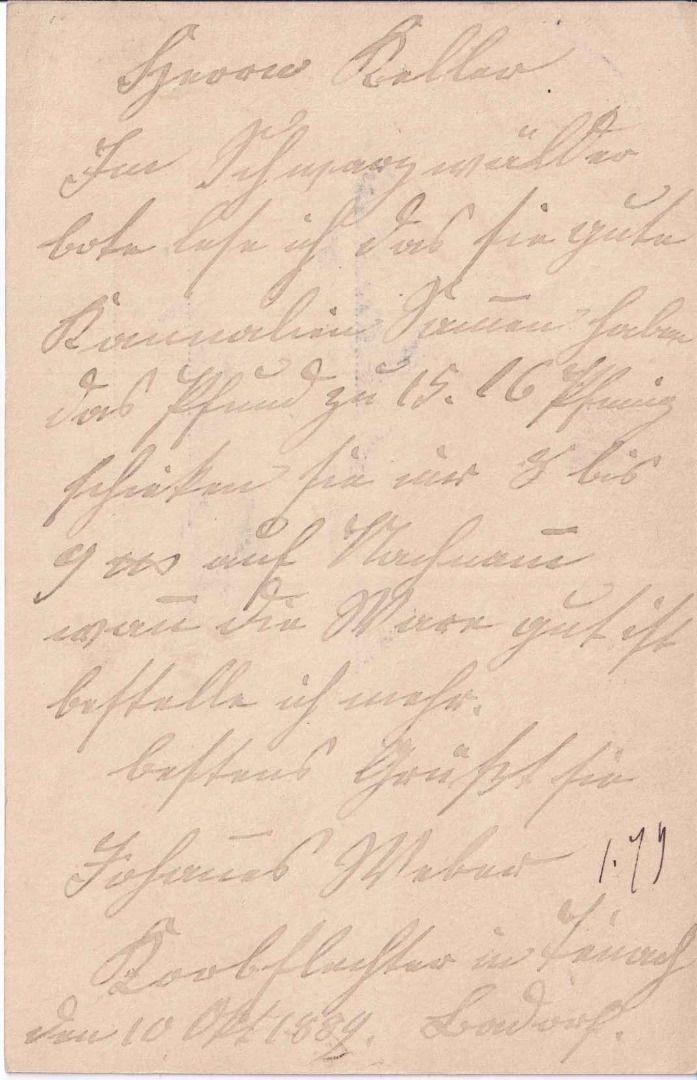 Herrn Keller
Im Schwarzwälder
bote lese ich das sie gute
Kannalien Samen haben
das Pfund zu 15. 16 Pfennig
schicken sie mir 8 bis
9 auf Nachnam̅
wan̅ die Ware gut ist
bestelle ich mehr.
bestens Grüßt sie
Johan̅es Weber
Korbflechter in Teinach
den 10 Okt 1889. Badort.